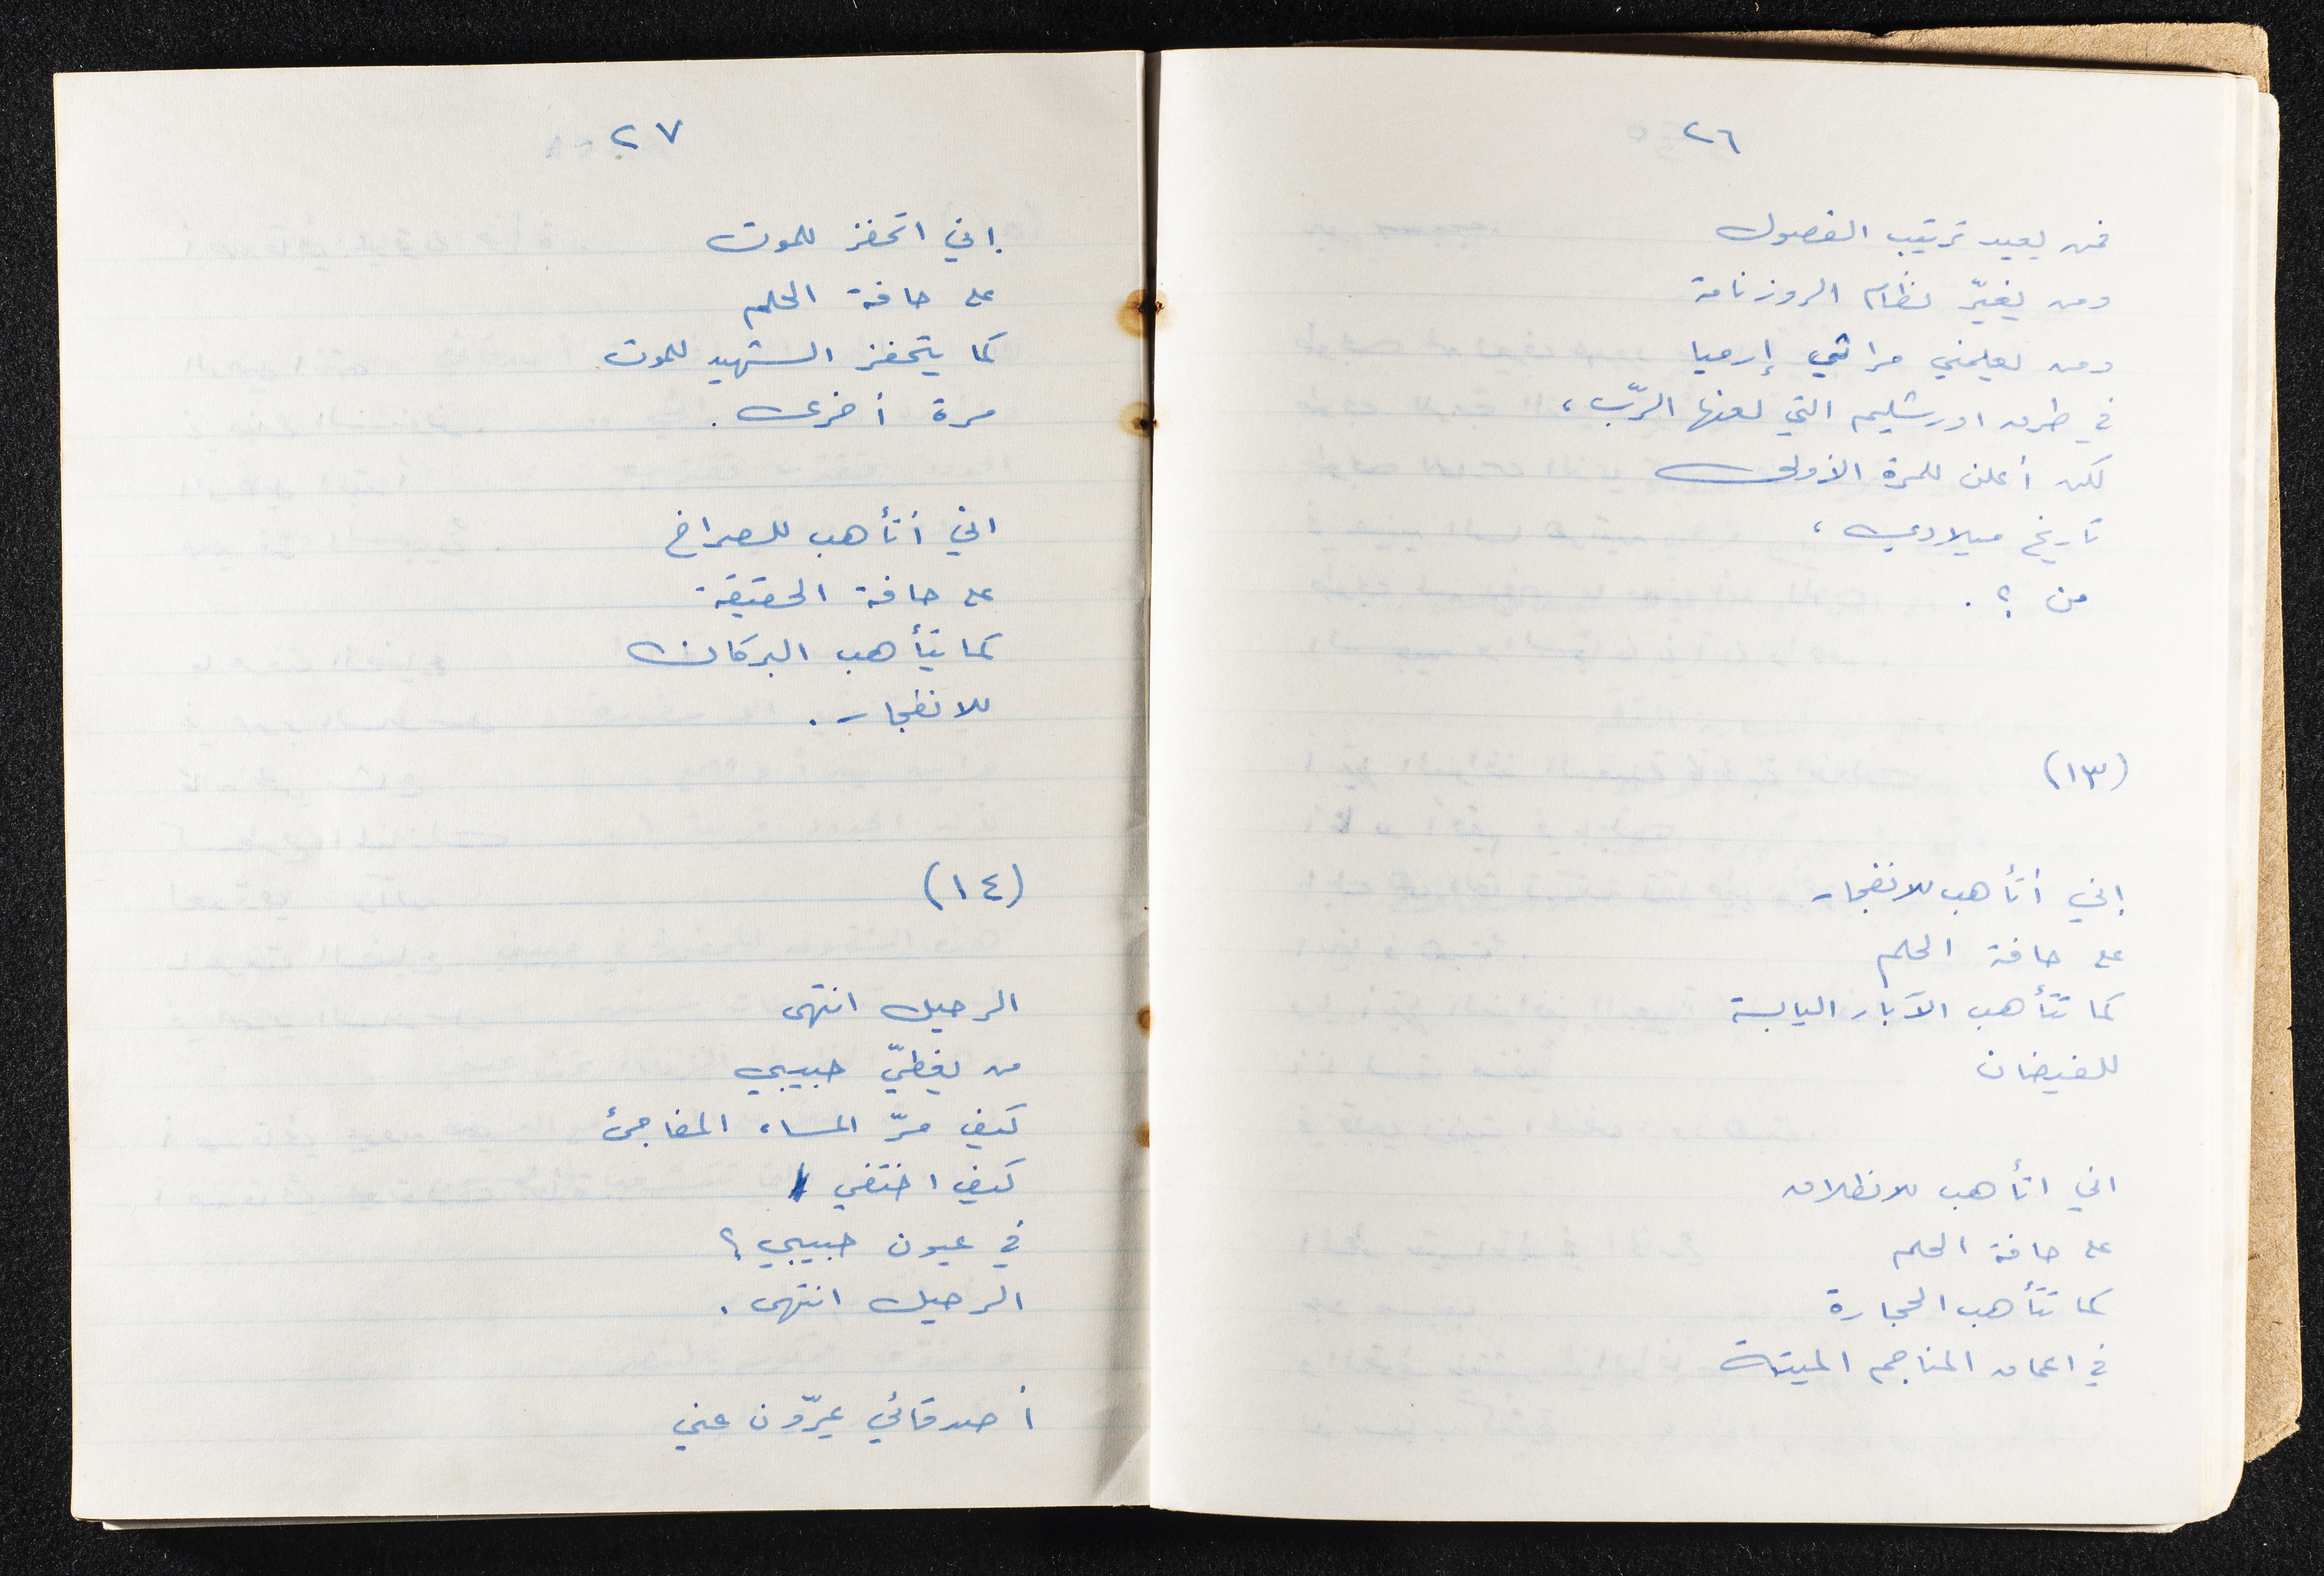 ٢٦
فمن يعيد ترتيب الفصول
ومن يغيّر نظام الروزنامة
ومن يعلمني مراثي إرميا
في طرق اورشليم التي لعنها الرّب،
لكي أعلن للمرة الأولى
تاريخ ميلادي،
من ؟ .
(١٣)
إني أتأهب للانفجار
على حافة الحلم
كما تتأهب الآبار اليابسة
للفيضان
اني اتأهب للانطلاق
على حافة الحلم
كما تتأهب الحجارة
في اعماق المناجم الميتة
٢٧
إني اتحفز للموت
على حافة الحلم
كما يتحفز الشهيد للموت
مرة أخرى .
اني أتأهب للصراخ
على حافة الحقيقة
كما يتأهب البركان
للانفجار .
(١٤)
الرحيل انتهى
من يغطيّ حبيبي
كيف مرّ المساء المفاجئ
كيف اختفى
في عيون حبيبي ؟
الرحيل انتهى .
أصدقائي يمرّون عني